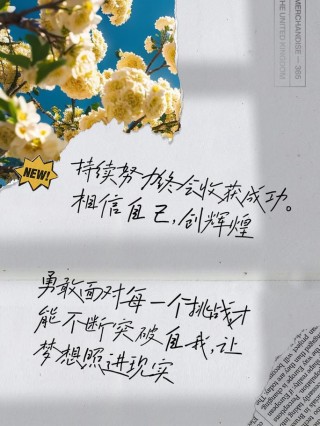 MERCHANDISE — 365
THE UNITED KINGDOM
NEW!
持续努力终会收获成功。
相信自己，创辉煌
勇敢面对每一个挑战才
能不断突破自我，让
梦想照进现实